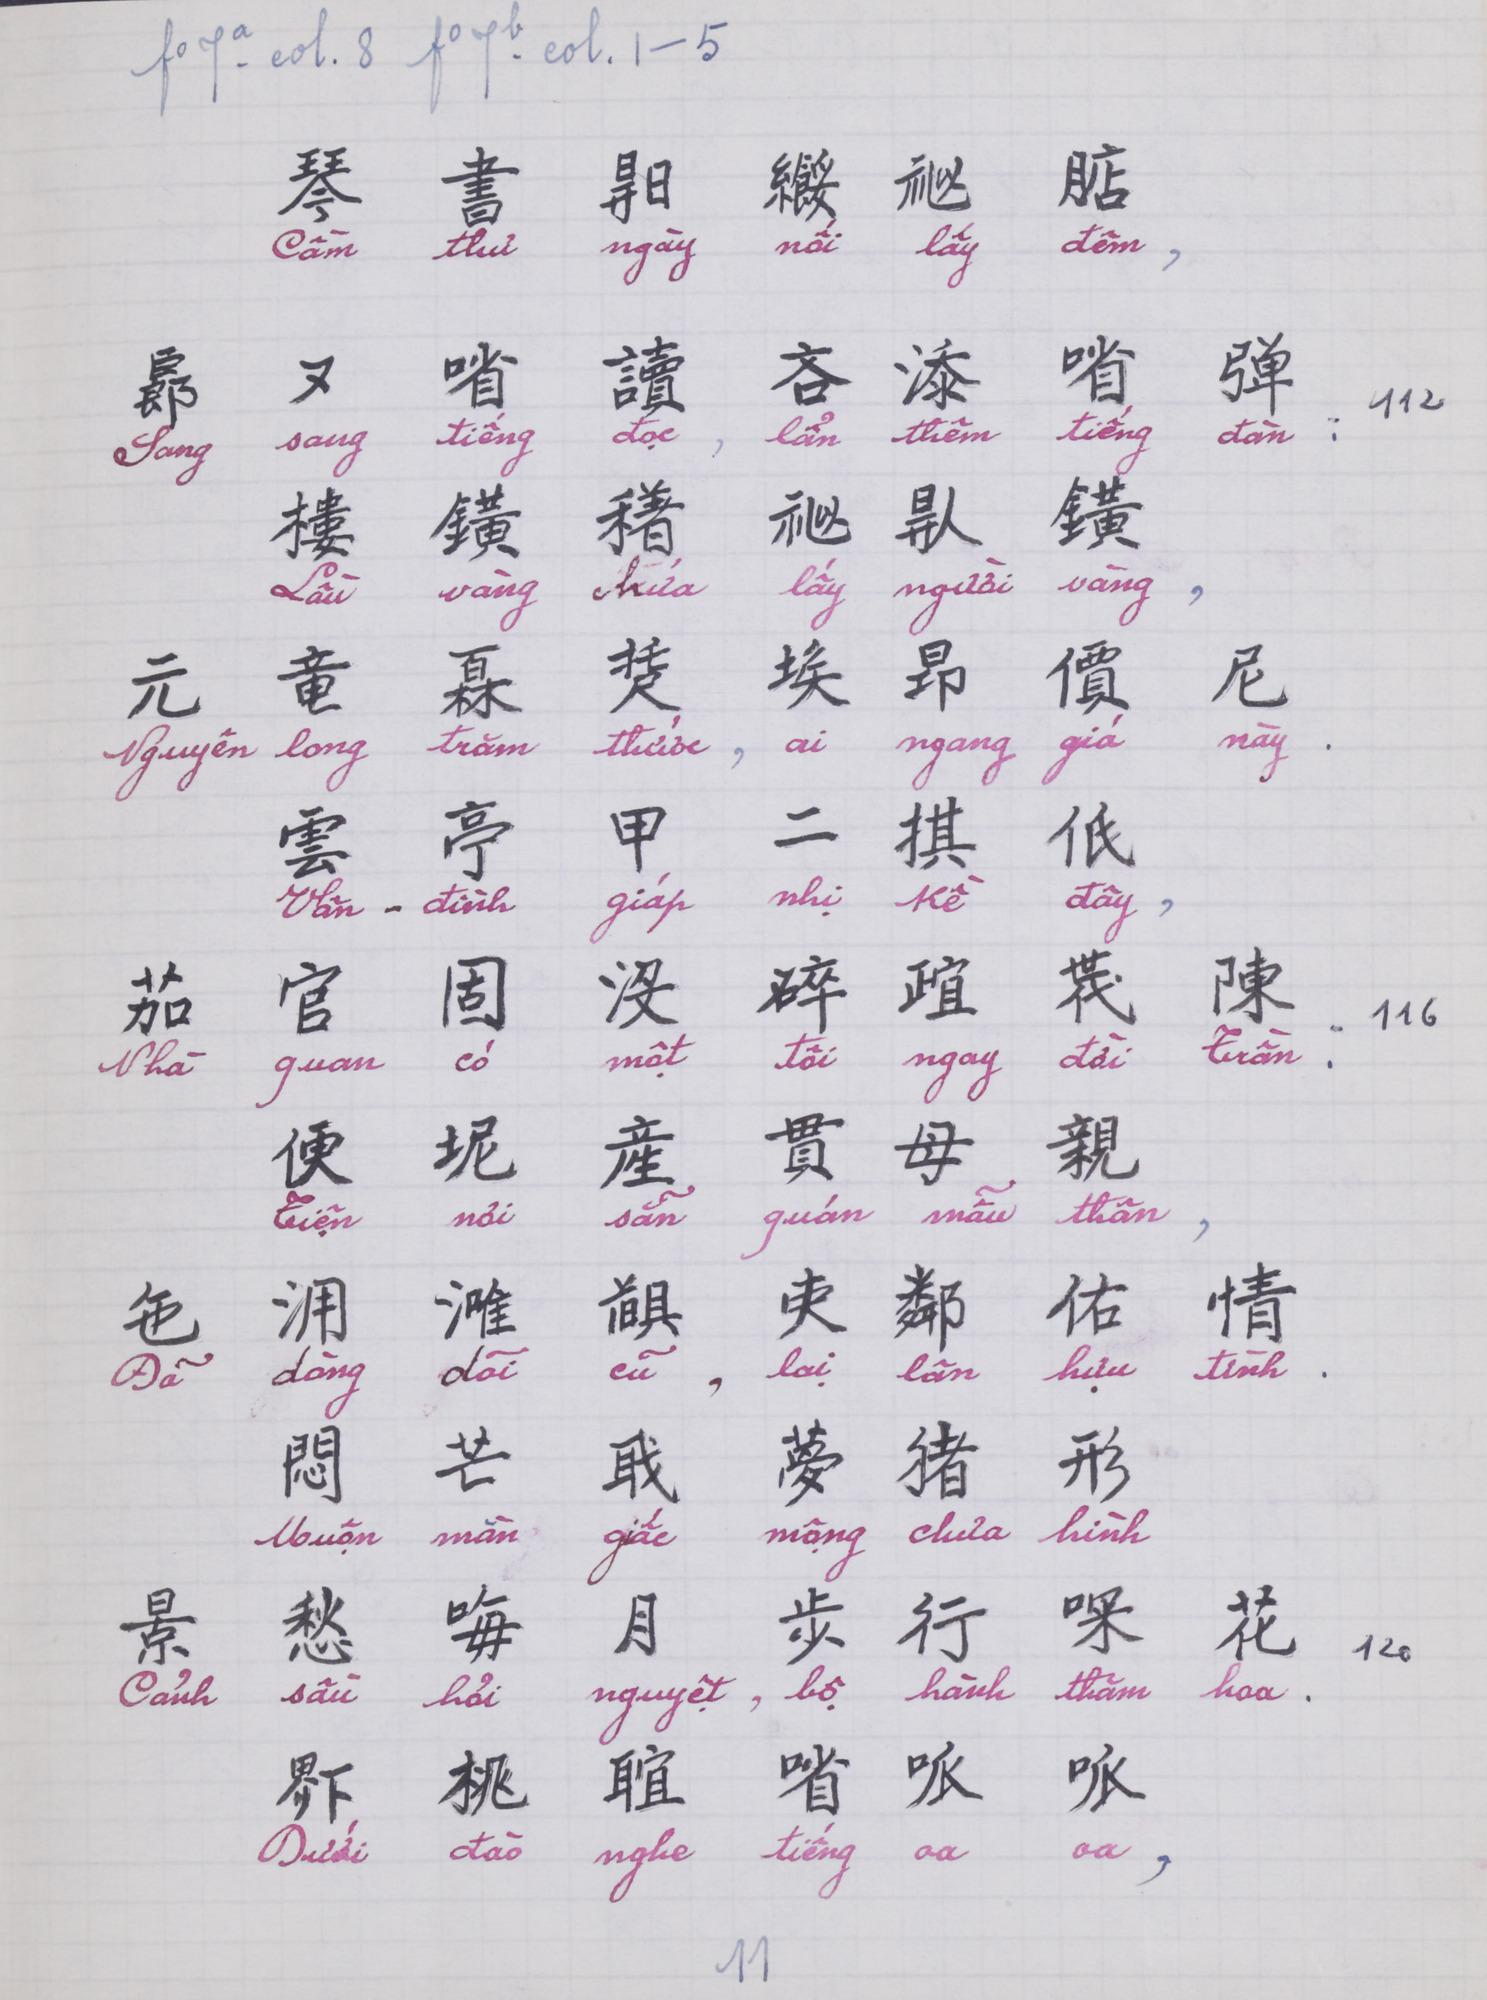 fº 7ª. col. 8 fº 7ᵇ. col. 1–5
琴 書 𣈜 𦇒 祕
Cầm thư ngày nối lấy đêm,
又 㗂 讀 吝 添 㗂 弾 112
Sang sang tiếng đọc, lẩn thêm tiếng đàn :
樓 鐄 祕 鐄
Lầu vàng chứa lấy người vàng,
元 竜 𤾓 埃 昂 價 尼
Nguyên long trăm thước, ai ngang giá này .
雲 亭 甲 二 掑 低
Vân - đình giáp nhị kề đây,
茄 官 固 没 碎 陳 116
Nhà quan có một tôi ngay đời Trần :
便 坭 産 貫 母 親
Tiện nơi sẵn quán mẫu thân,
㐌 泂 濰 吏 鄰 佑 情
Đã dòng dõi cũ, lại lân hựu tình .
悶 芒 聀 夢 猪 形
Muộn màn giấc mộng chưa hình
景 愁 𠳨 月 步 行 花 120
Cảnh sầu hỏi nguyệt, bộ hành thăm hoa .
桃 㗂 呱 呱
Dưới đào nghe tiếng oa oa,
11